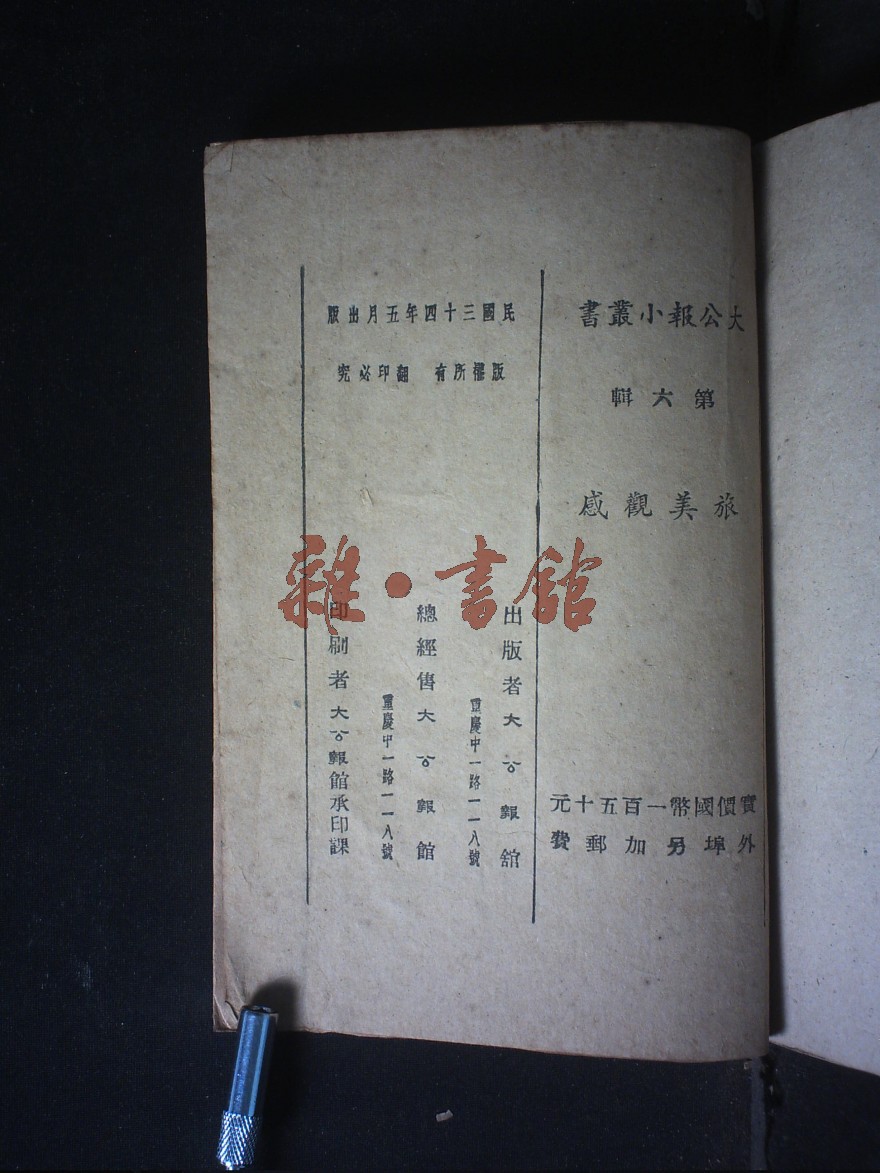 大公報小叢書
第六輯
旅美觀感
實價國幣一百五十元
外埠另加郵費
民國三十四年五月出版
版權所有 翻印必究
出版者大公報館
重慶中一路一一八號
總經售大公報館
重慶中一路一一八號
印刷者大公報館承印課
雜·書館